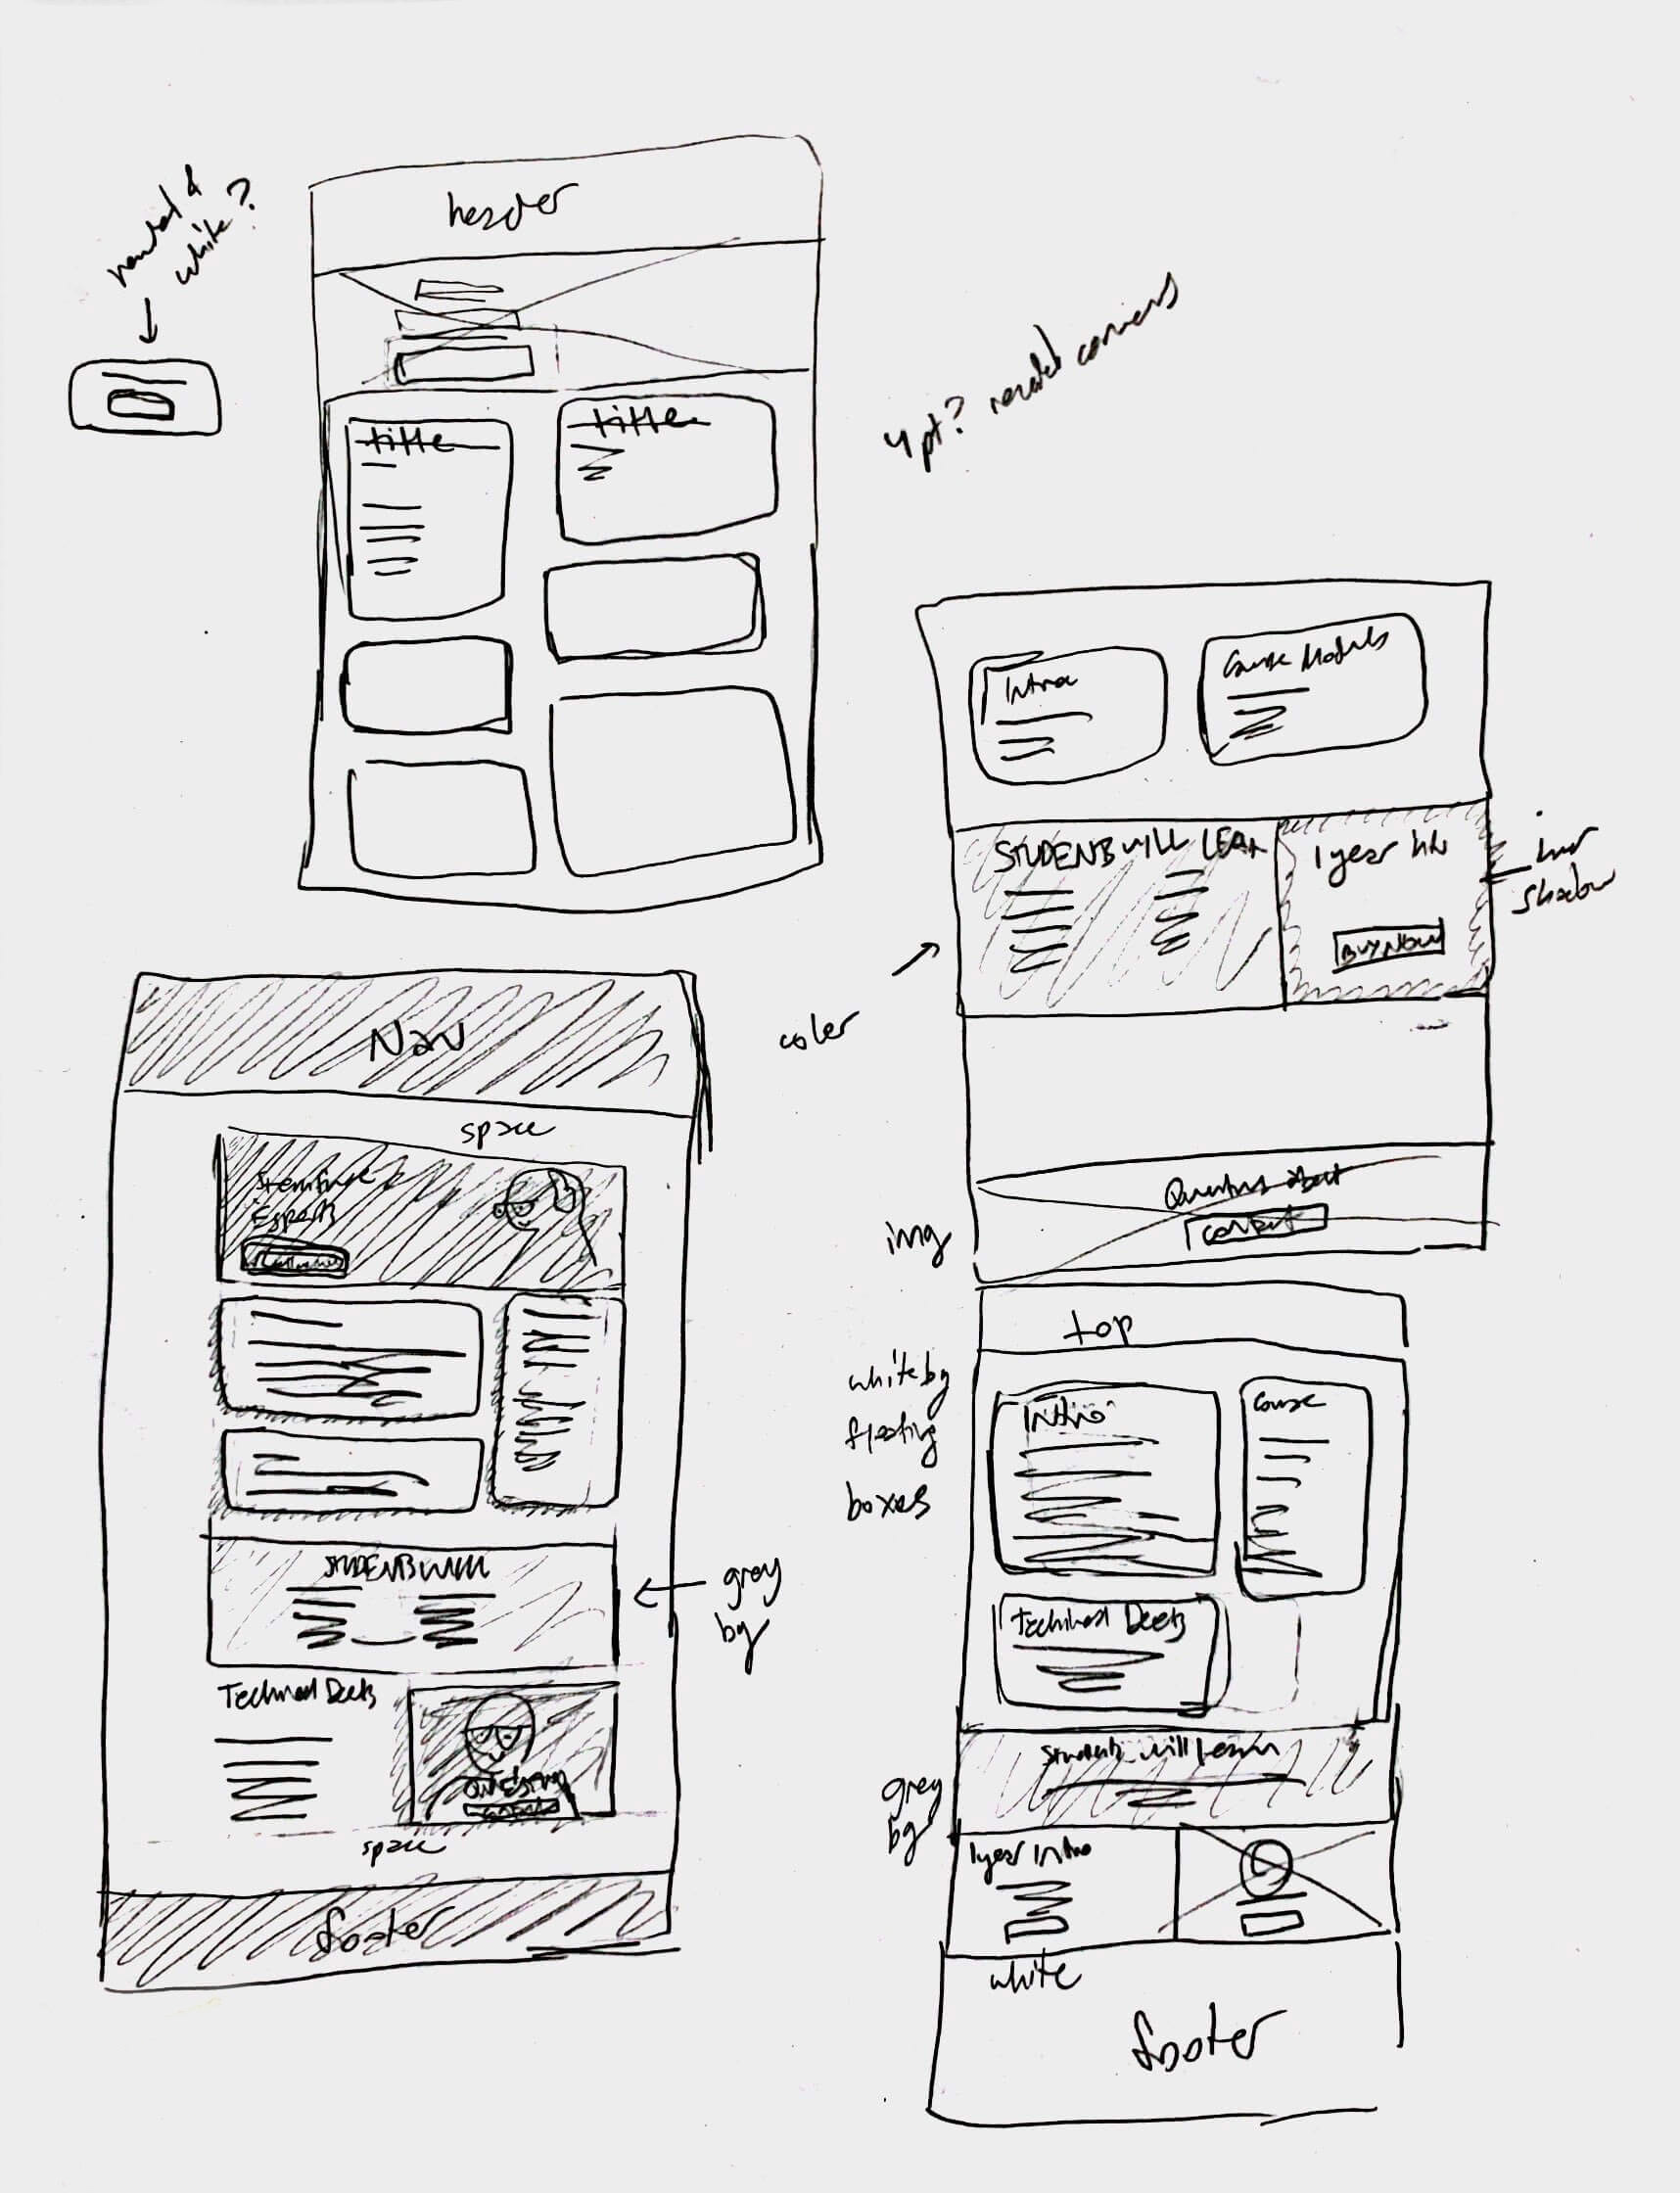 white?
header
title
title
4pt? rounded corners
Intro
Course Modules
STUDENTS WILL LEAR
1 year
BUY NOW
shadow
color
img
contact
Nav
space
STUDENTS WILL
grey
bg
Technical Deets
space
footer
top
white bg
floating
boxes
Intro
Course
Technical Deets
Students will learn
grey
bg
1 year Intro
white
footer